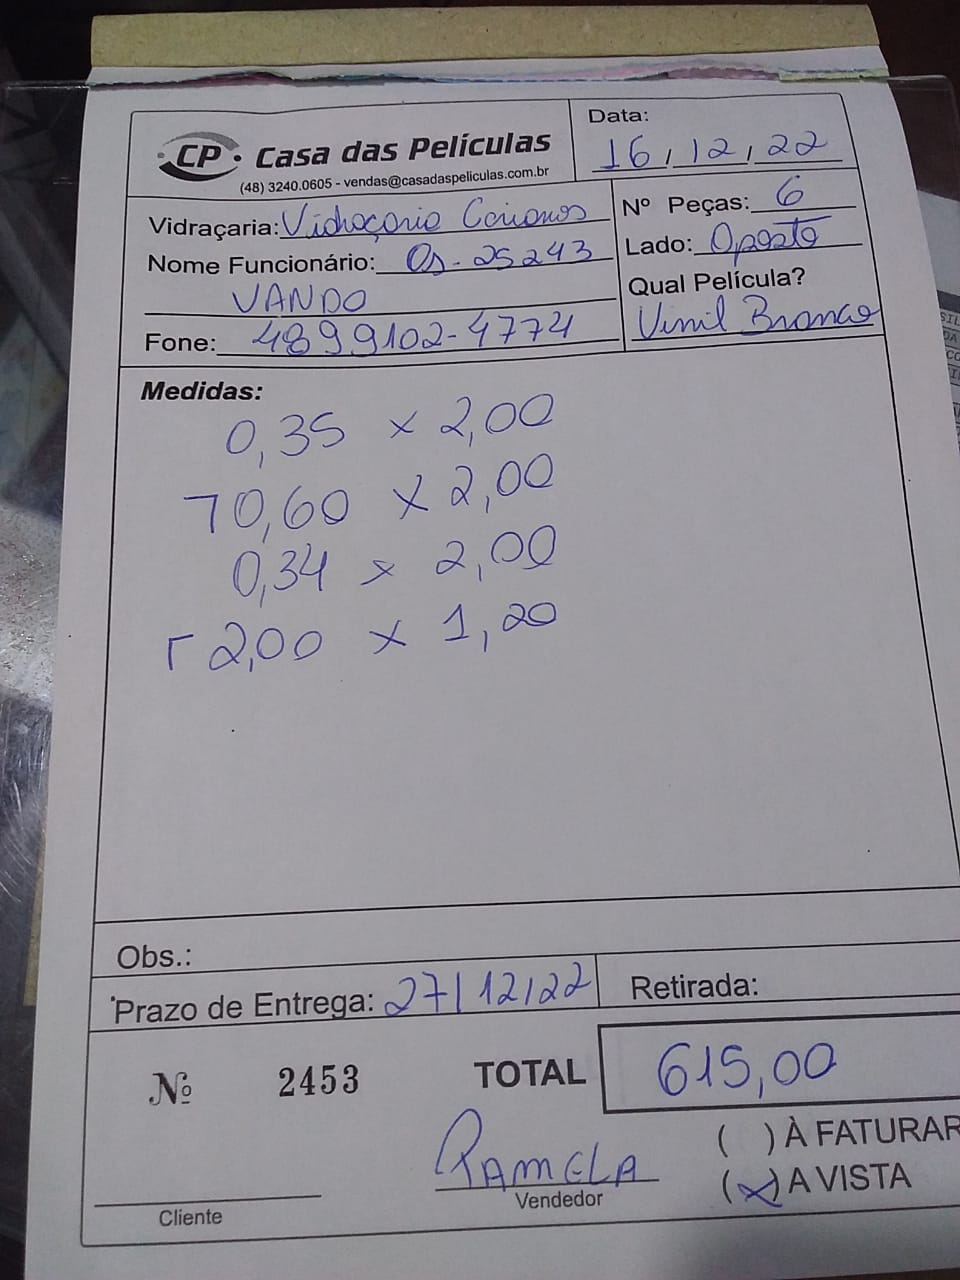 CP Casa das Películas
(48) 3240.0605 - vendas@casadaspeliculas.com.br
Data:
16/12/22
Vidraçaria: Vidraçaria Corianos
Nome Funcionário: Os-25243
VANDO
Fone: 4899102-4774
Nº Peças: 6
Lado: Oposto
Qual Película?
Vinil Branco
Medidas:
0,35 x 2,00
70,60 x 2,00
0,34 x 2,00
2,00 x 1,20
Obs.:
Prazo de Entrega: 27/12/22
Retirada:
Nº 2453
TOTAL 615,00
( ) À FATURAR
(x) A VISTA
PAMELA
Vendedor
Cliente